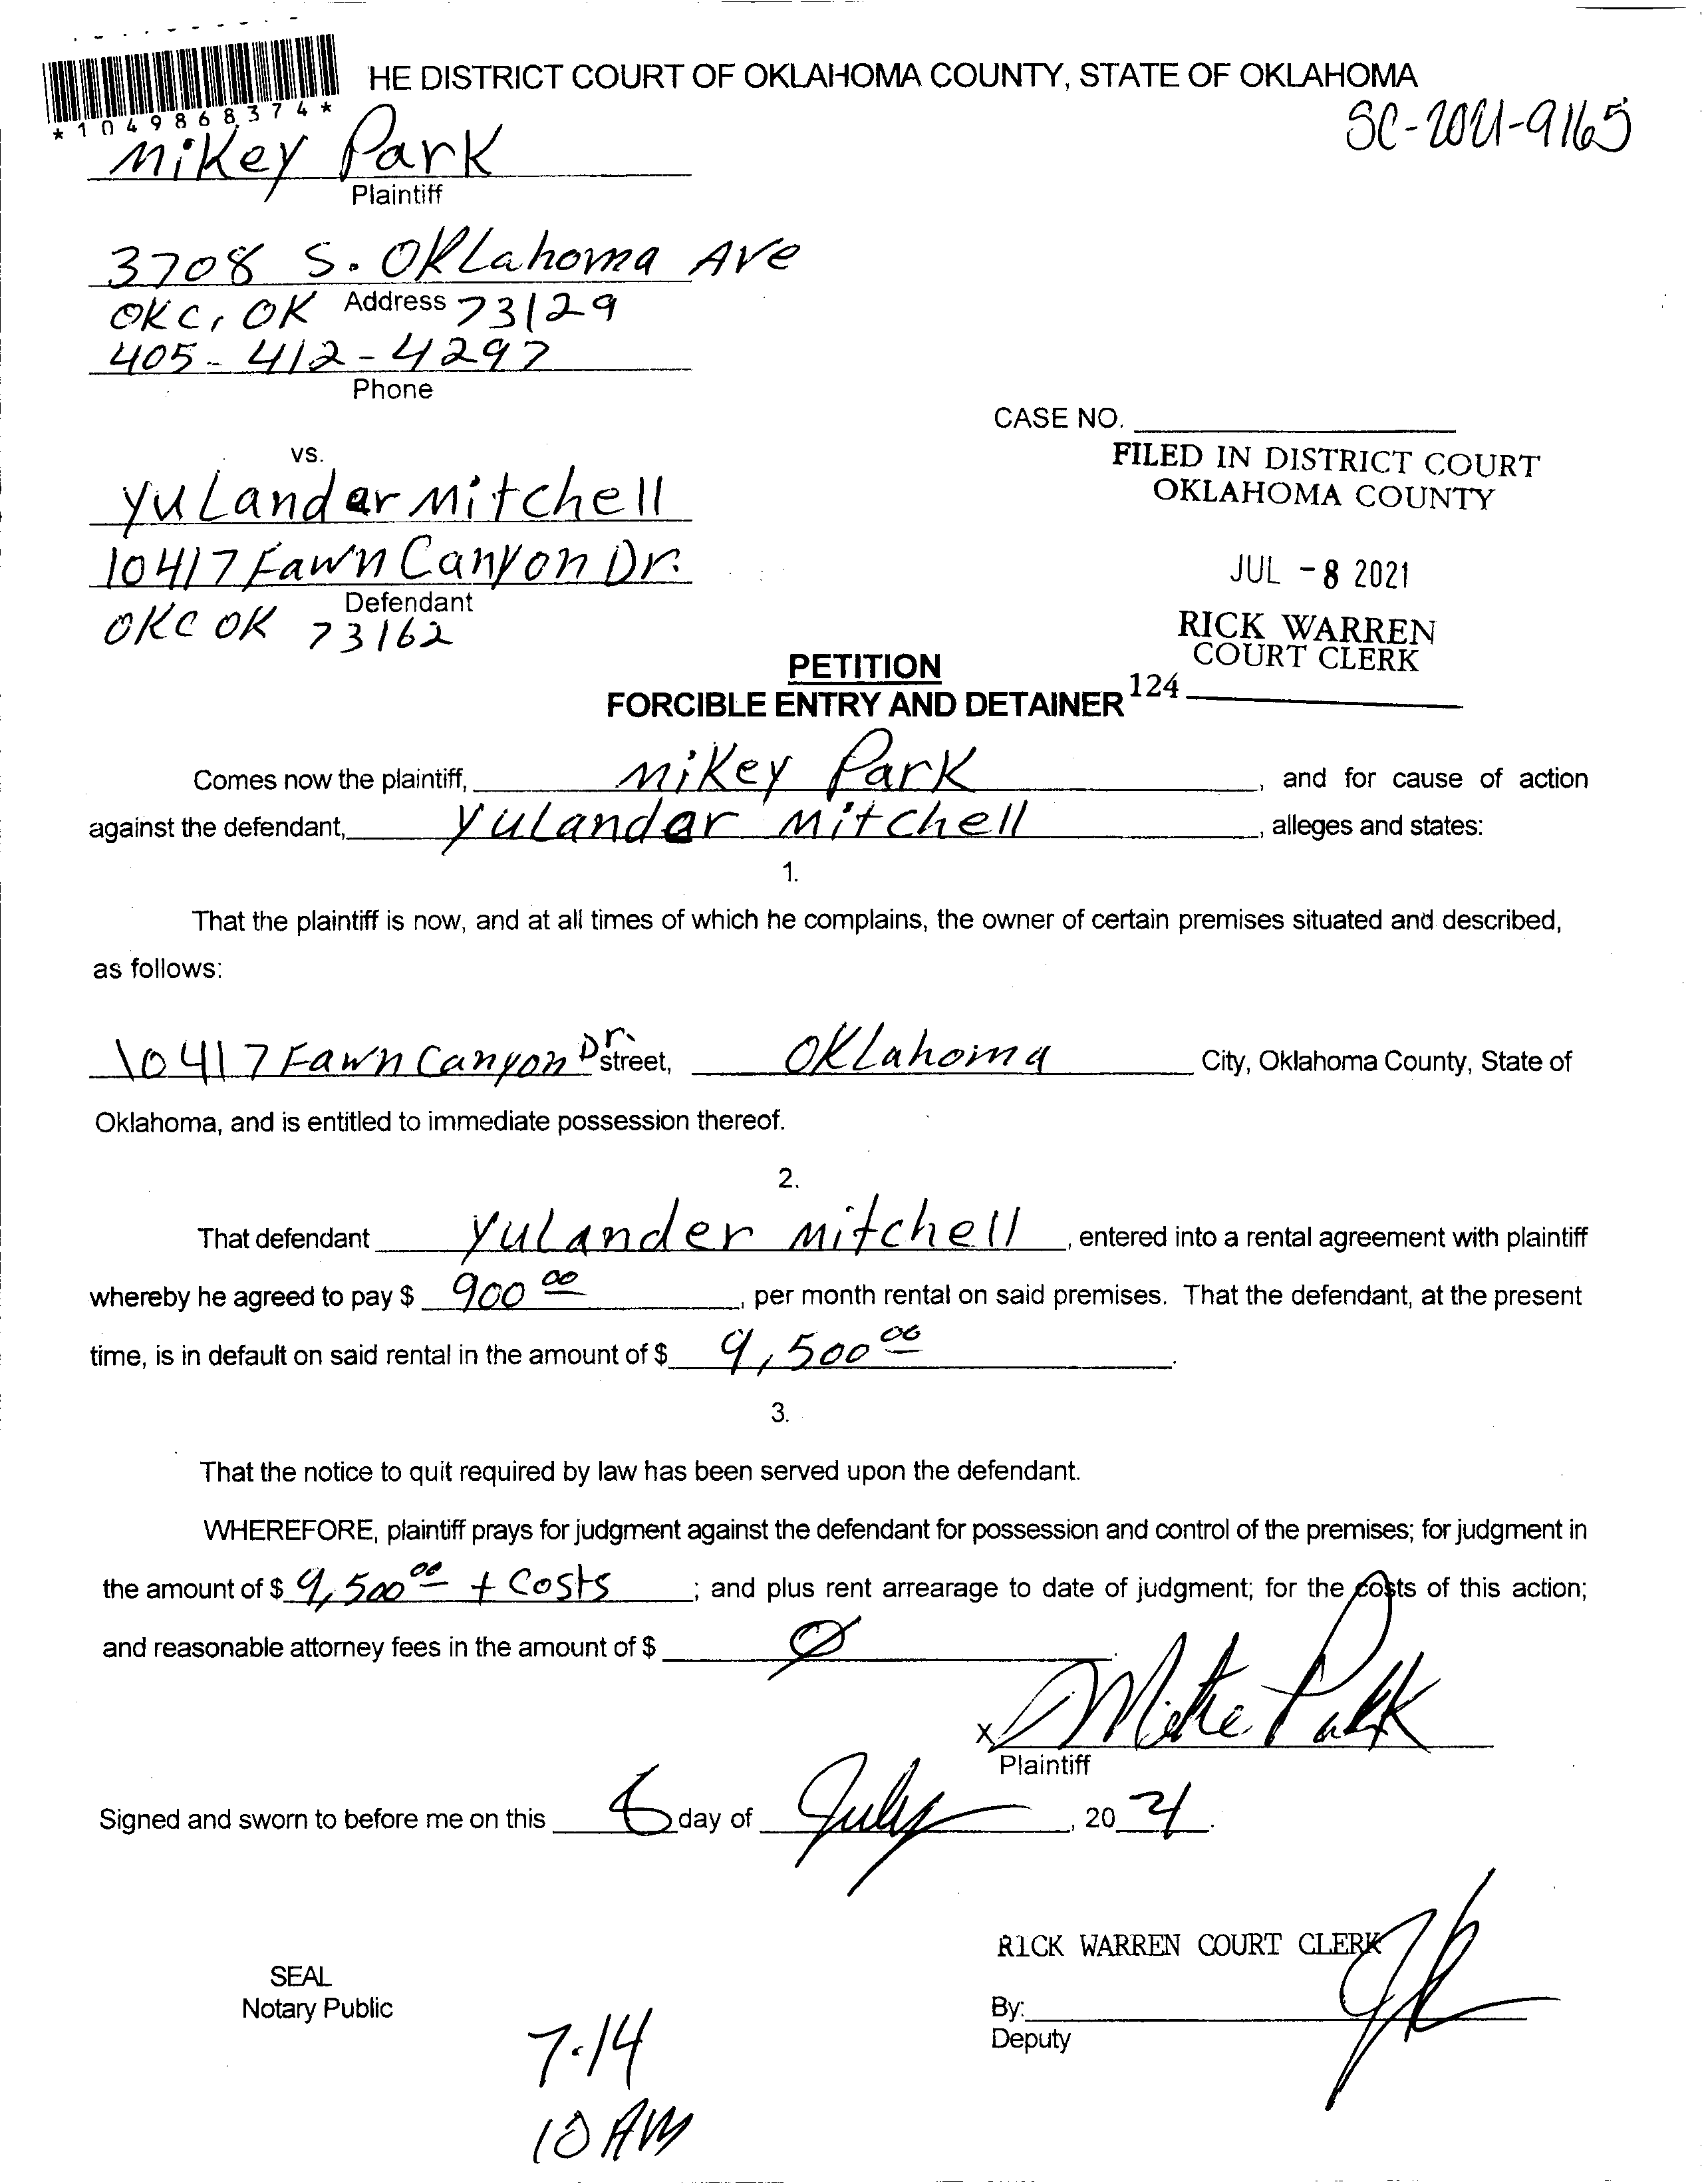 HE DISTRICT COURT OF OKLAHOMA COUNTY, STATE OF OKLAHOMA
*1049868374*
SC-2021-9165
Mikey Park
Plaintiff
3708 S. Oklahoma Ave
Address
OKC, OK 73129
405-412-4297
Phone
CASE NO.
FILED IN DISTRICT COURT
OKLAHOMA COUNTY
JUL -8 2021
RICK WARREN
COURT CLERK
124
vs.
Yulander Mitchell
10417 Fawn Canyon Dr.
Defendant
OKC OK 73162
PETITION
FORCIBLE ENTRY AND DETAINER
Comes now the plaintiff, Mikey Park, and for cause of action
against the defendant, Yulander Mitchell, alleges and states:
1.
That the plaintiff is now, and at all times of which he complains, the owner of certain premises situated and described,
as follows:
10417 Fawn Canyon Dr. street, Oklahoma City, Oklahoma County, State of
Oklahoma, and is entitled to immediate possession thereof.
2.
That defendant Yulander Mitchell, entered into a rental agreement with plaintiff
whereby he agreed to pay $ 900 00, per month rental on said premises. That the defendant, at the present
time, is in default on said rental in the amount of $ 9,500 00.
3.
That the notice to quit required by law has been served upon the defendant.
WHEREFORE, plaintiff prays for judgment against the defendant for possession and control of the premises; for judgment in
the amount of $ 9,500 00 + Costs; and plus rent arrearage to date of judgment; for the costs of this action;
and reasonable attorney fees in the amount of $ Ø.
x Mike Park
Plaintiff
Signed and sworn to before me on this day of July, 20 21.
RICK WARREN COURT CLERK
SEAL
Notary Public
By:
Deputy
7-14
10 AM